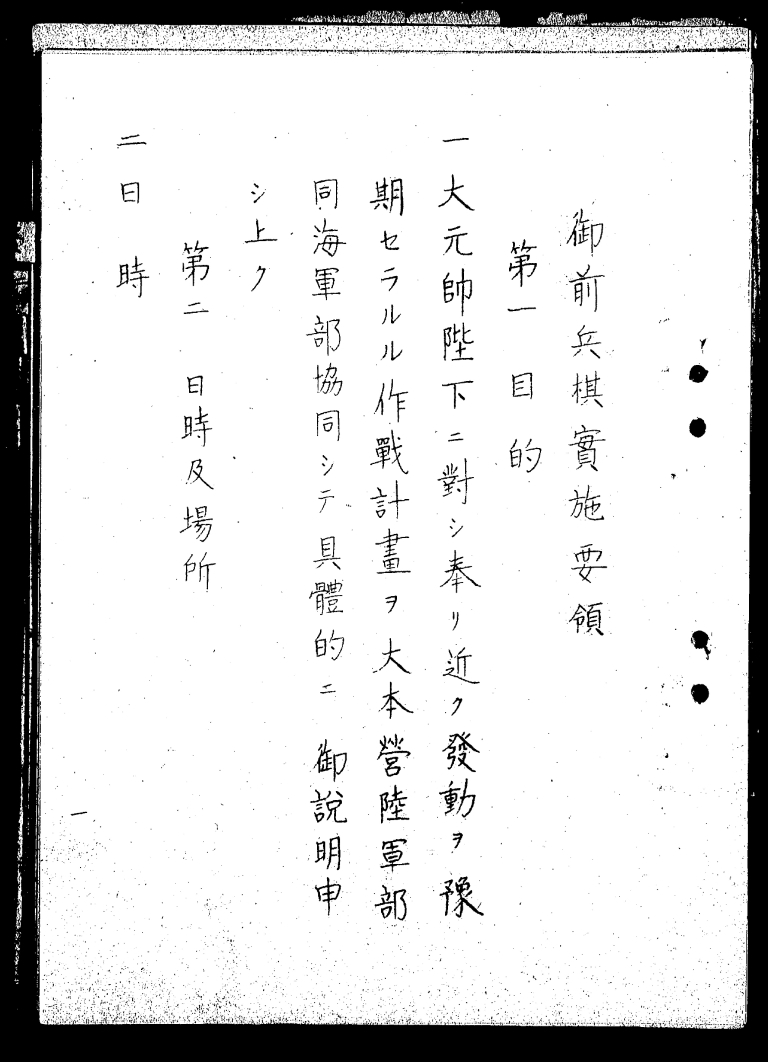 御前兵棋實施要領
第一 目的
一大元帥陛下ニ對シ奉リ近ク發動ヲ豫
期セラルル作戰計畫ヲ大本營陸軍部
同海軍部協同シテ具體的ニ御說明申
シ上ク
第二 日時及場所
二日時
一